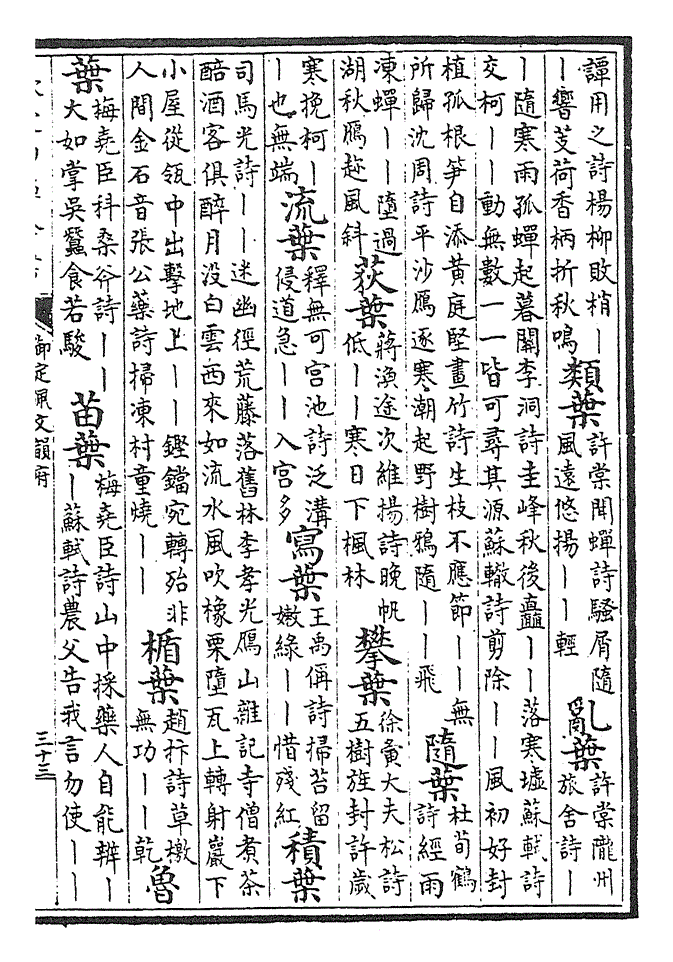 譚用之詩楊柳敗梢丨
丨響芰荷香柄折秋鳴
類葉
許棠聞蟬詩騷屑隨
風遠悠揚丨丨輕
亂葉
許棠隴州
旅舍詩丨
丨隨寒雨孤蟬起暮關李洞詩圭峰秋後疊丨丨落寒墟蘇軾詩
交柯丨丨動無數一一皆可尋其源蘇轍詩剪除丨丨風初好封
植孤根笋自添黃庭堅畫竹詩生枝不應節丨丨無
所歸沈周詩平沙鴈逐寒潮起野樹鴉隨丨丨飛
隨葉
杜荀鶴
詩經雨
凍蟬丨丨墮過
湖秋鴈趂風斜
荻葉
蔣渙途次維揚詩晚帆
低丨丨寒日下楓林
攀葉
徐夤大夫松詩
五樹旌封許歲
寒挽柯丨
丨也無端
流葉
釋無可宫池詩泛溝
侵道急丨丨入宫多
寫葉
王禹偁詩掃苔留
嫩綠丨丨惜殘紅
積葉
司馬光詩丨丨迷幽徑荒藤落舊林李孝光鴈山雜記寺僧煮茶
醅酒客俱醉月没白雲西來如流水風吹橡栗墮瓦上轉射巖下
小屋從瓴中出擊地上丨丨鏗鐺宛轉殆非
人間金石音張公藥詩掃凍村童燒丨丨
楯葉
趙抃詩草檄
無功丨丨乾
魯
葉
梅堯臣科桑斧詩丨丨
大如掌吳蠶食若駿
苗葉
梅堯臣詩山中採藥人自能辨丨
丨蘇軾詩農父告我言勿使丨丨
御定佩文韻府
三十三